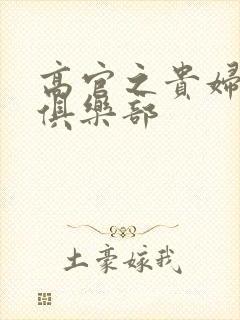 高官之貴婦
俱樂部
土豪嫁我